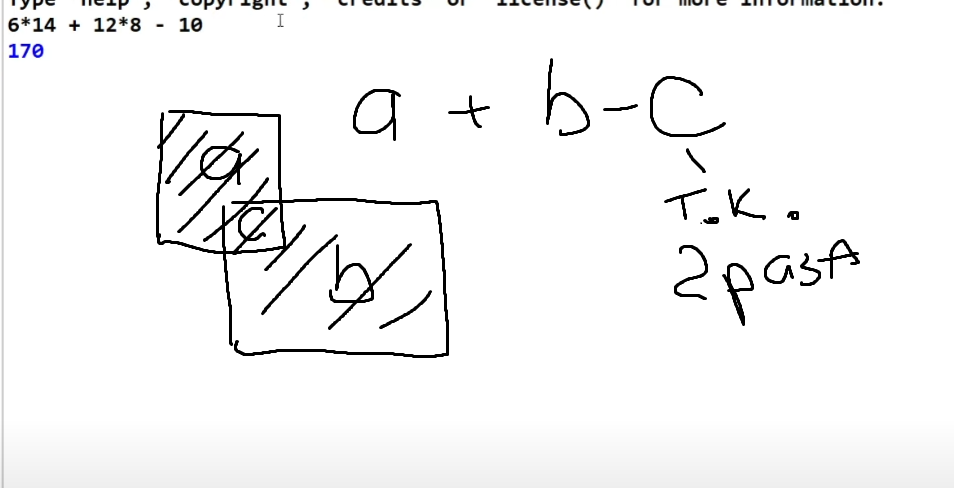 Type "help", "copyright", "credits" or "license()" for more information.
6*14 + 12*8 - 10
170
a + b - c
a
т.к.
c
2 раза
b